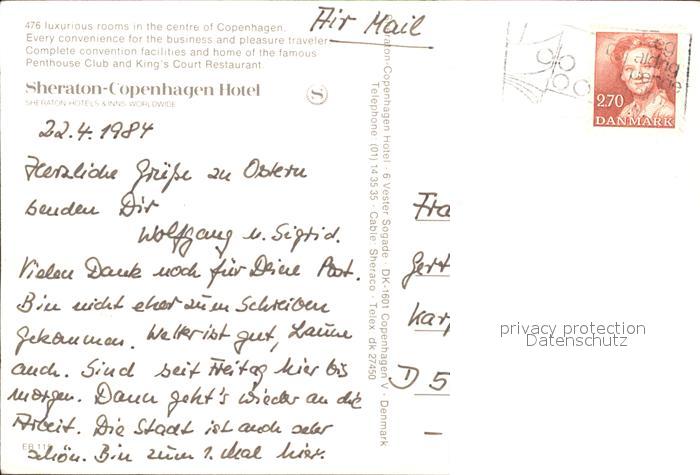 476 luxurious rooms in the centre of Copenhagen.
Every convenience for the business and pleasure traveler.
Complete convention facilities and home of the famous
Penthouse Club and King's Court Restaurant.
Sheraton-Copenhagen Hotel
SHERATON HOTELS & INNS WORLDWIDE
Air Mail
22.4.1984
Herzliche Grüße zu Ostern
senden Dir
Wolfgang u. Sigrid.
Vielen Dank noch für Deine Post.
Bin nicht eher zum Schreiben
gekommen. Wetter ist gut, Laune
auch. Sind seit Freitag hier bis
morgen. Dann geht's wieder an die
Arbeit. Die Stadt ist auch sehr
schön. Bin zum 1. Mal hier.
EB 115
Sheraton-Copenhagen Hotel · 6 Vester Sogade · DK-1601 Copenhagen V · Denmark
Telephone (01) 14 35 35 · Cable: Sheraco · Telex dk 27450
2.70
DANMARK
og aldrig
Fra
Gert
Kar
D 5
privacy protection
Datenschutz